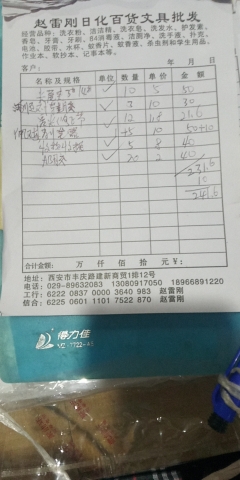 赵雷刚日化百货文具批发
经营品种：洗衣粉、洁洁精、洗衣皂、洗发水、护发素、
香皂、牙膏、牙刷、84消毒液、洁厕净、洗手液、扑克、
电池、胶带、水杯、蚊香片、蚊香液、杀虫剂和学生用品、
作业本、软抄本、记事本等。
年 月 日
客户：
名称及规格 单位 数量 单价 金额
10 5 50
3 10 30
12 1.8 21.6
+5 10 50+10
5 8 40
20 2 40
231.6
10
241.6
合计金额： 万 仟 佰 拾 元 ￥：
地址：西安市丰庆路建新商贸1排12号
电话：029-89632083 13080917050 18966891220
工行：6222 0837 0000 3640 983 赵雷刚
信合：6225 0601 1101 7522 870 赵雷刚
得力佳